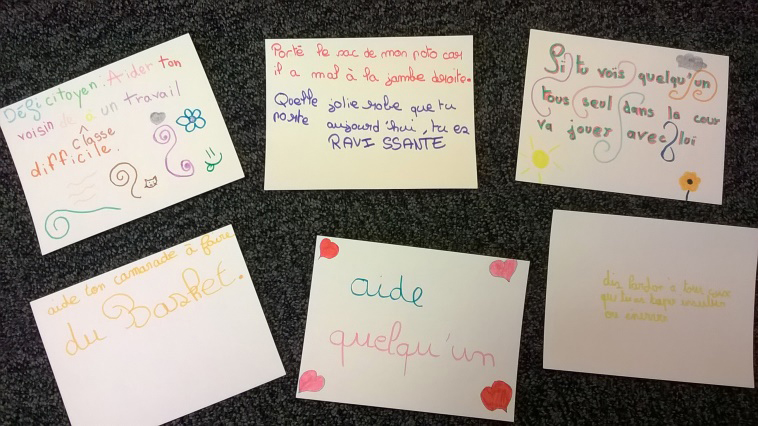 Défi citoyen : Aider ton
voisin de a un travail
classe
difficile.
Porté le sac de mon poto car
il a mal à la jambe droite.
Quelle jolie robe que tu
porte aujourd'hui, tu es
RAVI SSANTE
Si tu vois quelqu'un
tous seul dans la cour
va jouer avec loi
aide ton camarade à faire
du Basket.
aide
quelqu'un